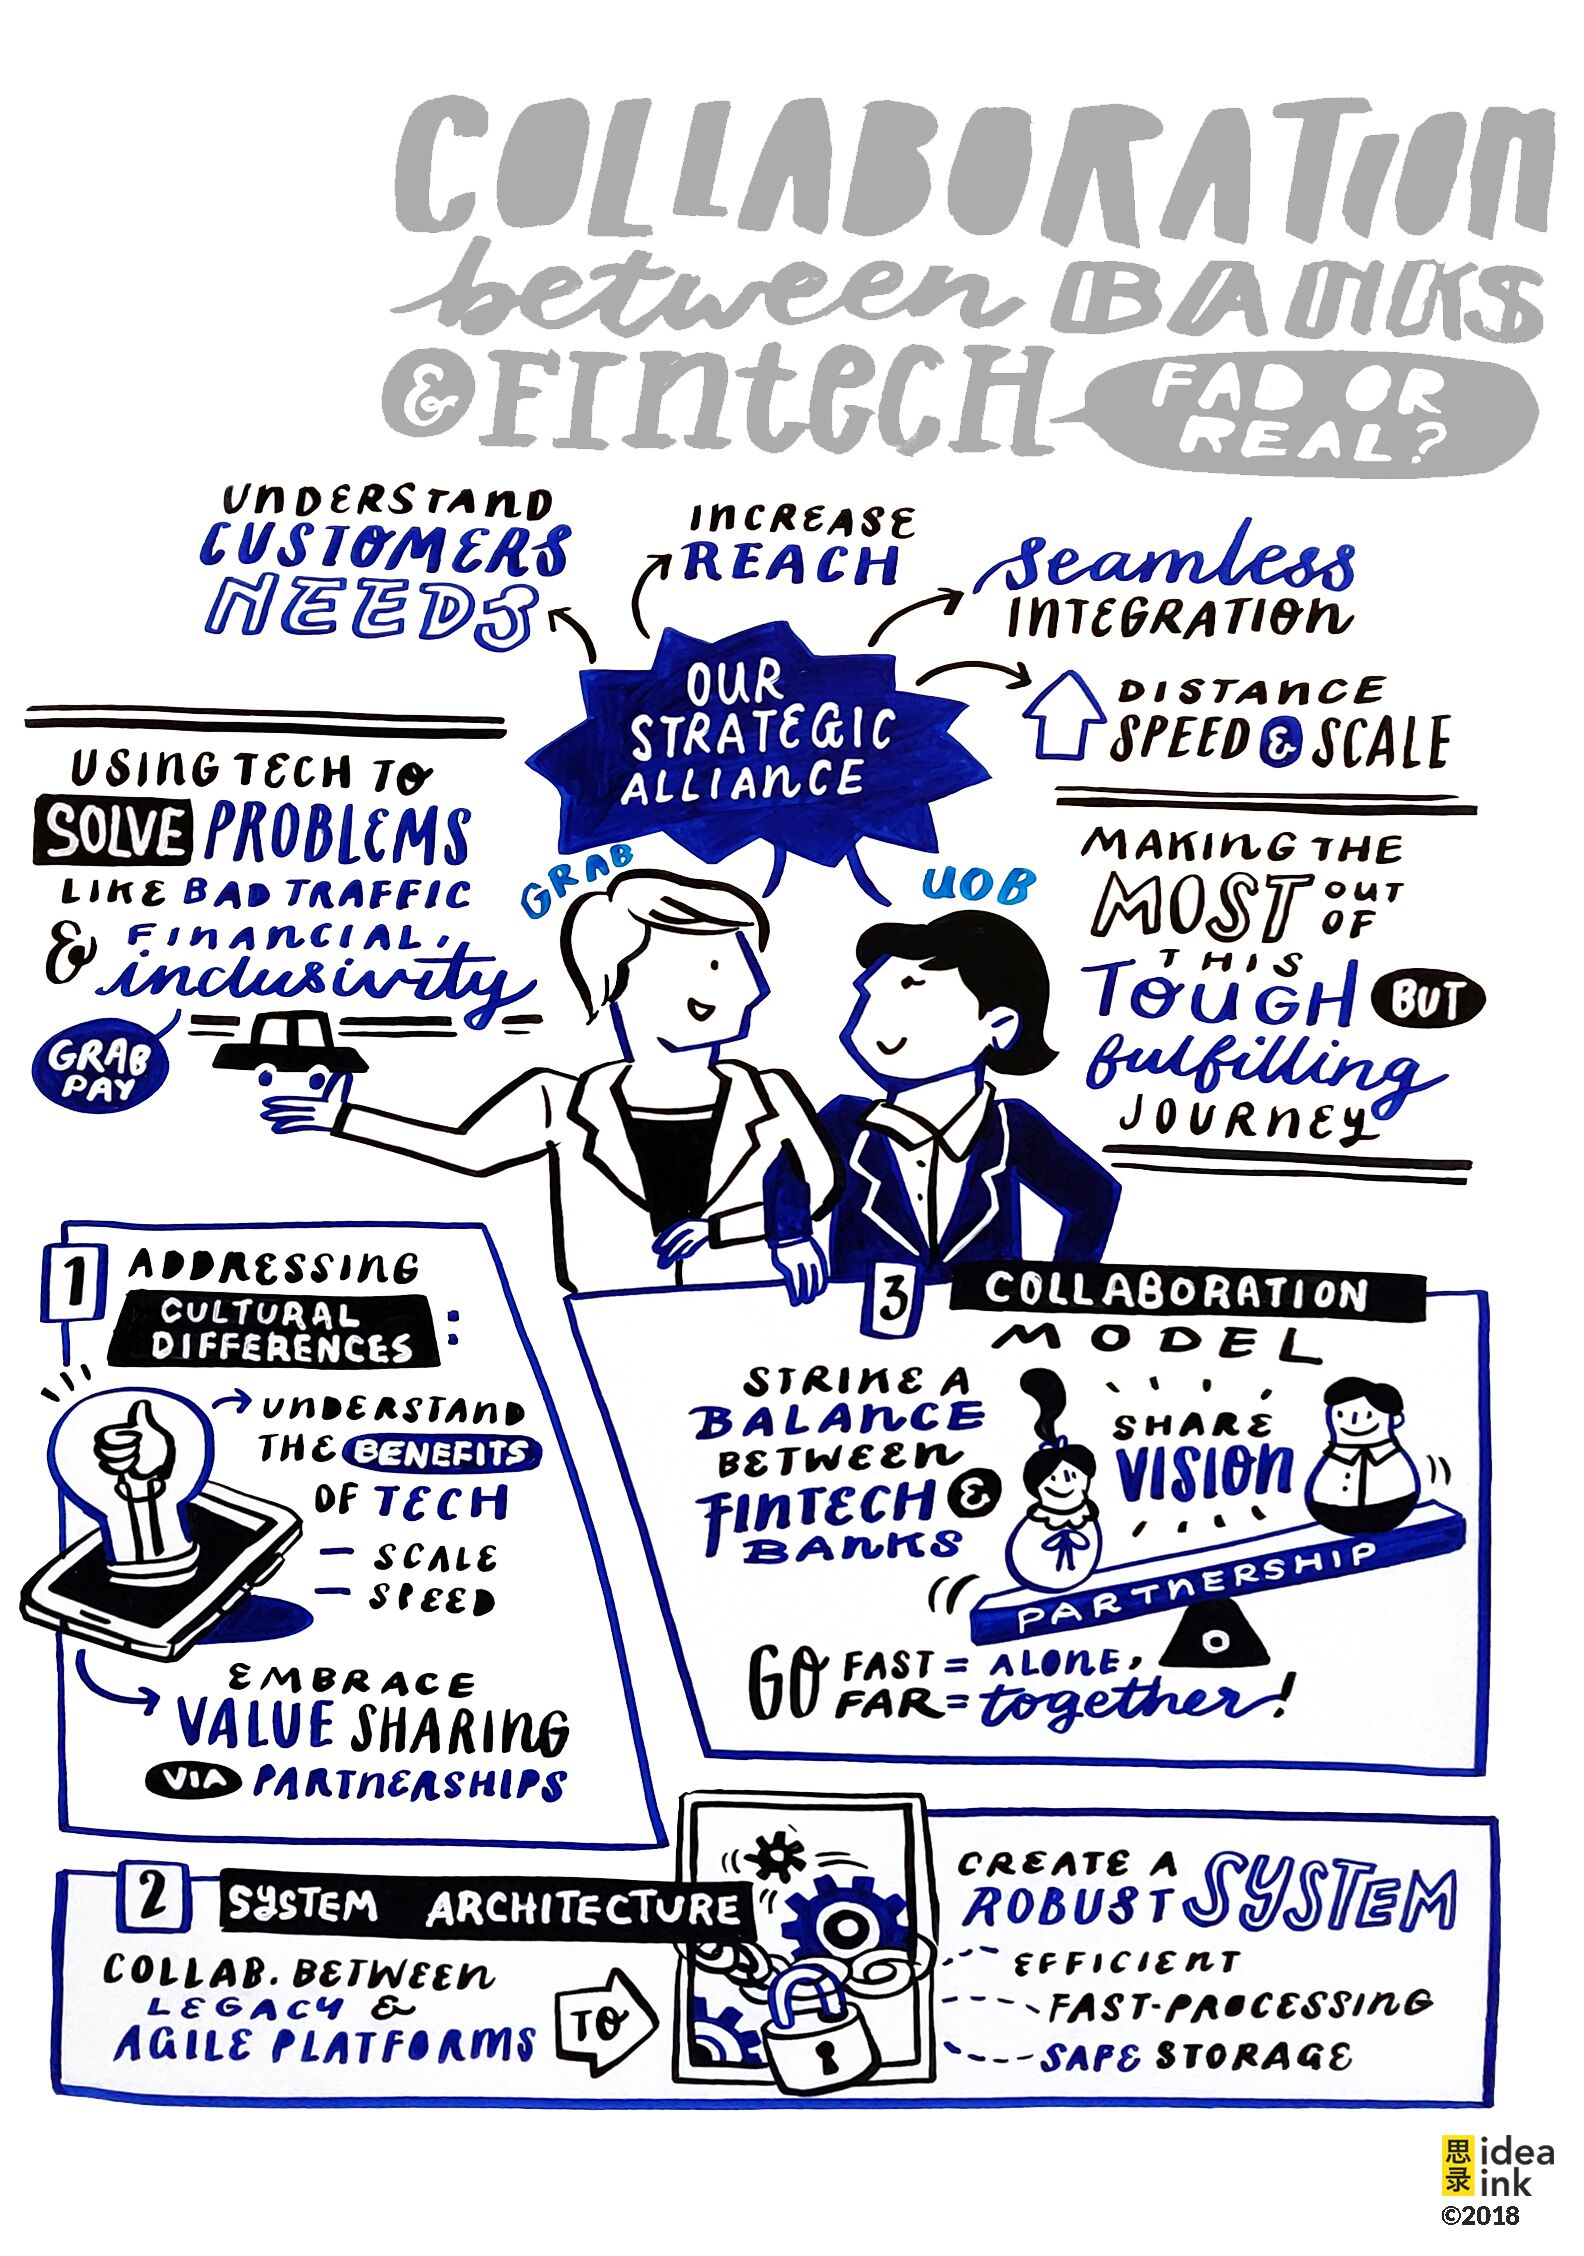 COLLABORATION
between BANKS
& FINTECH FAD OR
REAL?
UNDERSTAND
CUSTOMERS
NEEDS
INCREASE
REACH
seamless
INTEGRATION
DISTANCE
SPEED & SCALE
OUR
STRATEGIC
ALLIANCE
USING TECH TO
SOLVE PROBLEMS
LIKE BAD TRAFFIC
& FINANCIAL
inclusivity
GRAB
PAY
GRAB
UOB
MAKING THE
MOST OUT
OF
THIS
TOUGH BUT
fulfilling
JOURNEY
1 ADDRESSING
CULTURAL
DIFFERENCES :
UNDERSTAND
THE BENEFITS
OF TECH
- SCALE
- SPEED
EMBRACE
VALUE SHARING
VIA PARTNERSHIPS
3 COLLABORATION
MODEL
STRIKE A
BALANCE
BETWEEN
FINTECH &
BANKS
SHARE
VISION
PARTNERSHIP
GO FAST = ALONE,
FAR = together!
2 SYSTEM ARCHITECTURE
COLLAB. BETWEEN
LEGACY &
AGILE PLATFORMS
TO
CREATE A
ROBUST SYSTEM
EFFICIENT
FAST-PROCESSING
SAFE STORAGE
思录 idea
ink
©2018